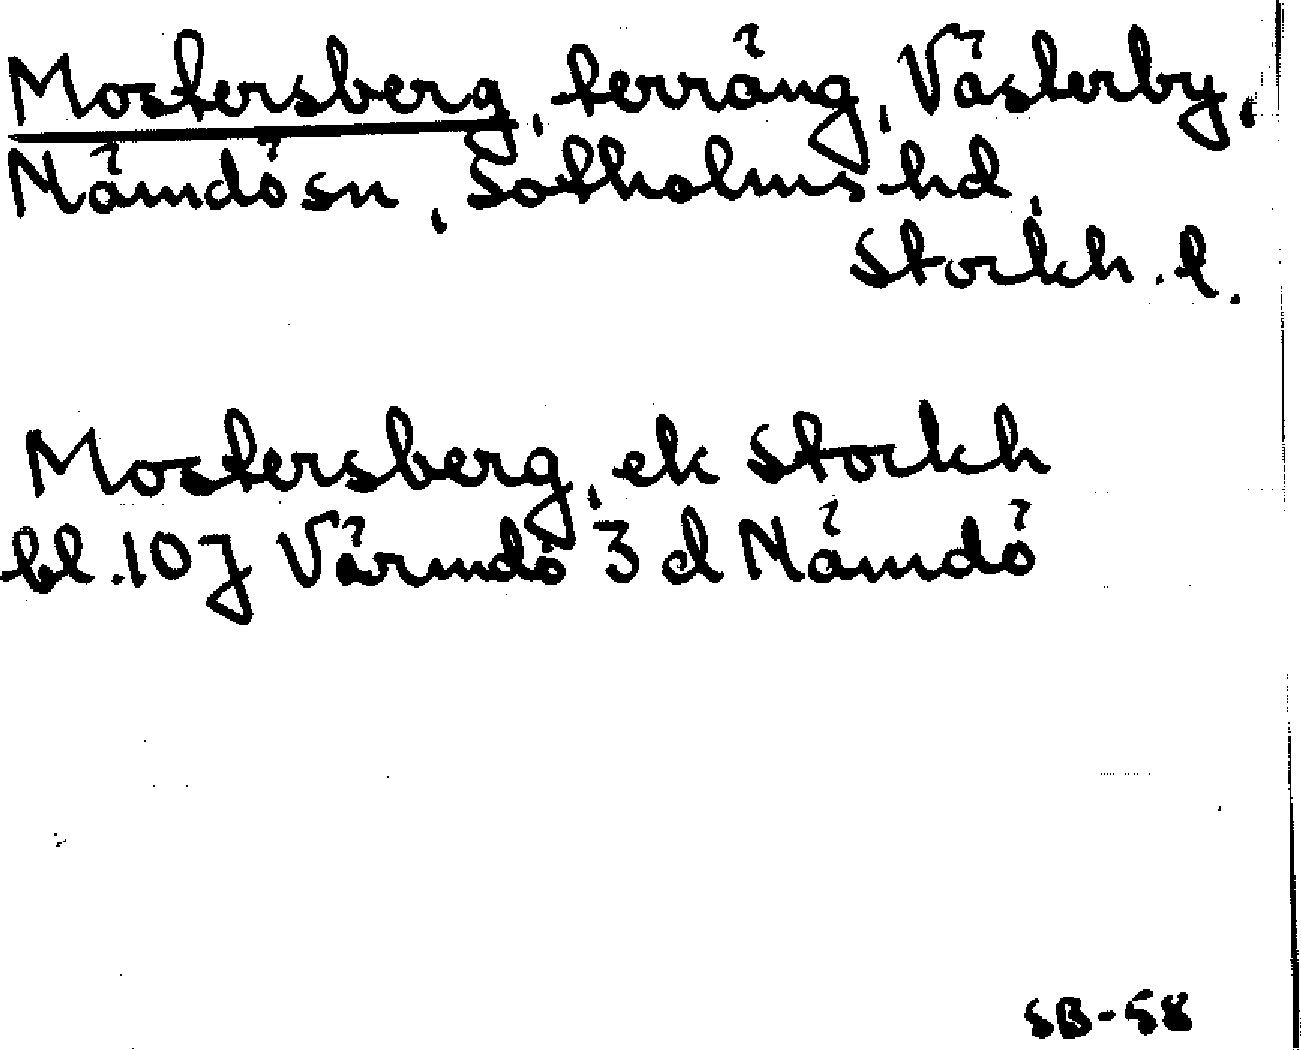 Mostersberg, terräng, Västerby,
Nämdö sn, Sotholms hd,
Stockh. l.
Mostersberg, ek Stockh
bl. 107 Värmdö 3 d Nämdö
SB-58